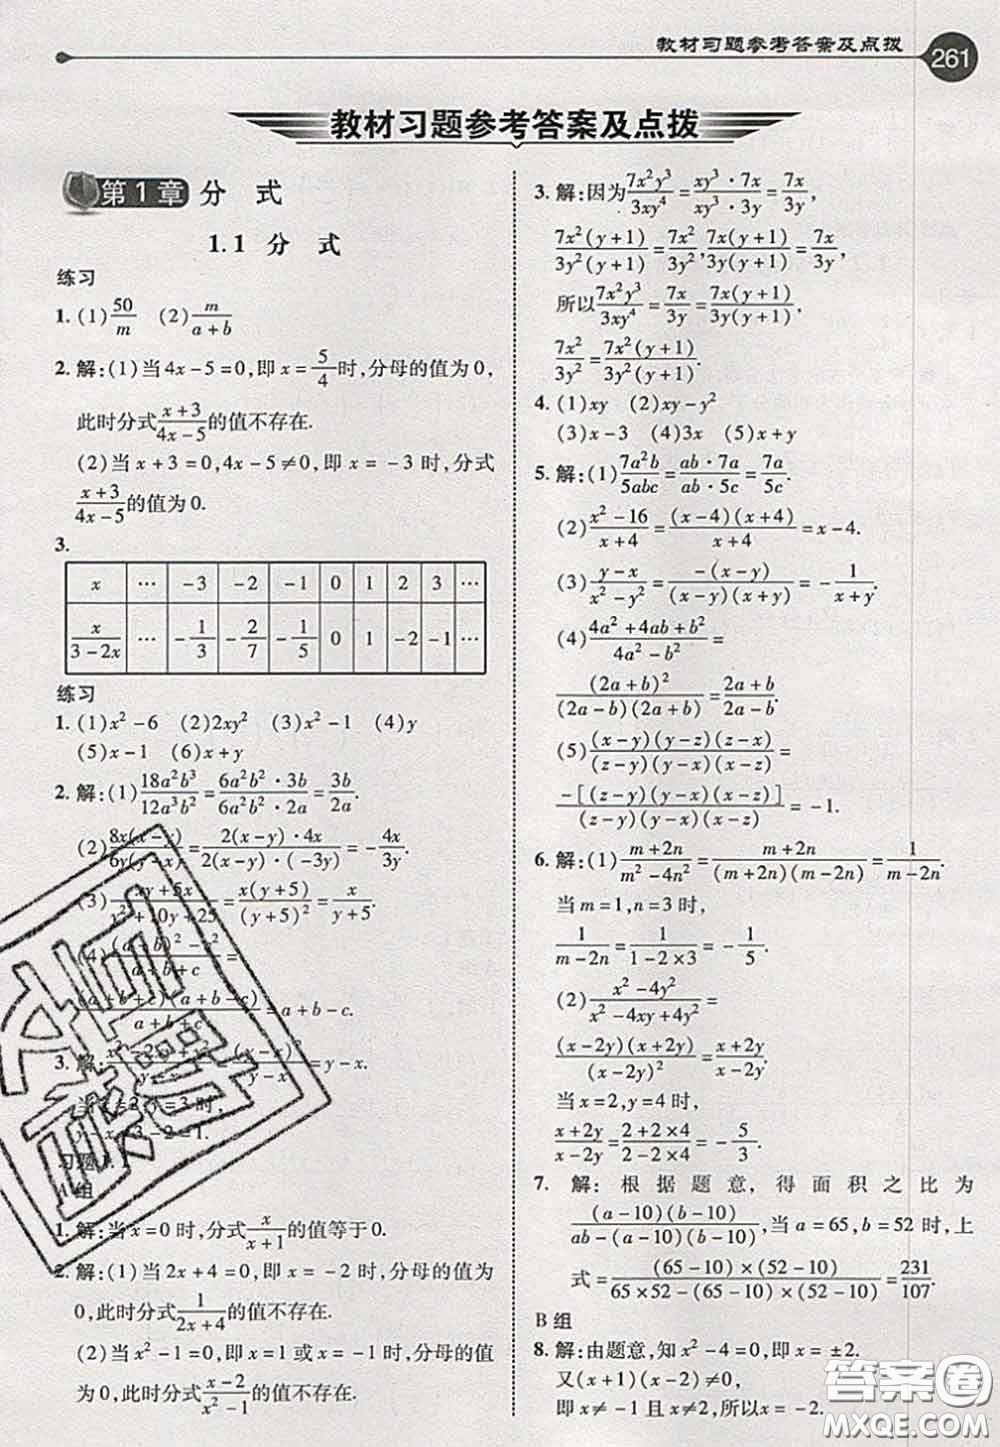 教材习题参考答案及点拨
261
教材习题参考答案及点拨
第1章 分 式
1.1 分 式
练习
1. (1) 50/m (2) m/(a+b)
2. 解:(1)当4x-5=0,即x=5/4时,分母的值为0,
此时分式(x+3)/(4x-5)的值不存在.
(2)当x+3=0,4x-5≠0,即x=-3时,分式
(x+3)/(4x-5)的值为0.
3.
x … -3 -2 -1 0 1 2 3 …
x/(3-2x) … -1/3 -2/7 -1/5 0 1 -2 -1 …
练习
1. (1)x²-6 (2)2xy² (3)x²-1 (4)y
(5)x-1 (6)x+y
2. 解:(1) 18a²b³/12a³b² = 6a²b²·3b/6a²b²·2a = 3b/2a.
(2) 8x(x-y)/6y(y-x) = 2(x-y)·4x/2(x-y)·(-3y) = -4x/3y.
(3) (xy+5x)/(y²+10y+25) = x(y+5)/(y+5)² = x/(y+5).
(4) ((a+b)²-c²)/(a+b+c) =
(a+b+c)(a+b-c)/(a+b+c) = a+b-c.
3. 解: = y-x.
当x=2,y=3时,
y-x=3-2=1.
习题
A组
1. 解:当x=0时,分式x/(x+1)的值等于0.
2. 解:(1)当2x+4=0,即x=-2时,分母的值为
0,此时分式1/(2x+4)的值不存在.
(2)当x²-1=0,即x=1或x=-1时,分母的值
为0,此时分式(x-2)/(x²-1)的值不存在.
3. 解:因为7x²y³/3xy⁴ = xy³·7x/xy³·3y = 7x/3y,
7x²(y+1)/3y²(y+1) = 7x²/3y², 7x(y+1)/3y(y+1) = 7x/3y,
所以7x²y³/3xy⁴ = 7x/3y = 7x(y+1)/3y(y+1),
7x²/3y² = 7x²(y+1)/3y²(y+1).
4. (1)xy (2)xy-y²
(3)x-3 (4)3x (5)x+y
5. 解:(1) 7a²b/5abc = ab·7a/ab·5c = 7a/5c.
(2) (x²-16)/(x+4) = (x-4)(x+4)/(x+4) = x-4.
(3) (y-x)/(x²-y²) = -(x-y)/(x-y)(x+y) = -1/(x+y).
(4) (4a²+4ab+b²)/(4a²-b²) =
(2a+b)²/(2a-b)(2a+b) = (2a+b)/(2a-b).
(5) (x-y)(y-z)(z-x)/(z-y)(y-x)(x-z) =
-[(z-y)(y-x)(x-z)]/(z-y)(y-x)(x-z) = -1.
6. 解:(1) (m+2n)/(m²-4n²) = (m+2n)/(m+2n)(m-2n) = 1/(m-2n).
当m=1,n=3时,
1/(m-2n) = 1/(1-2×3) = -1/5.
(2) (x²-4y²)/(x²-4xy+4y²) =
(x-2y)(x+2y)/(x-2y)² = (x+2y)/(x-2y).
当x=2,y=4时,
(x+2y)/(x-2y) = (2+2×4)/(2-2×4) = -5/3.
7. 解:根据题意,得面积之比为
(a-10)(b-10)/(ab-(a-10)(b-10)),当a=65,b=52时,上
式=(65-10)×(52-10)/(65×52-(65-10)×(52-10)) = 231/107.
B组
8. 解:由题意,知x²-4=0,即x=±2.
又(x+1)(x-2)≠0,
即x≠-1且x≠2,所以x=-2.
答案圈
MXQE.COM